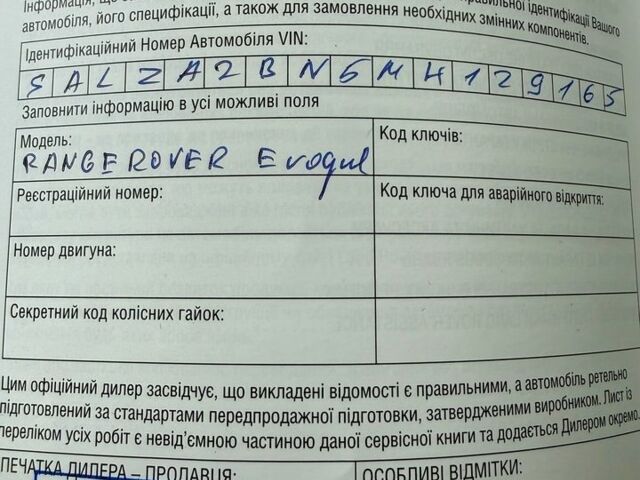 правильної ідентифікації Вашого
автомобіля, його специфікації, а також для замовлення необхідних змінних компонентів.
Ідентифікаційний Номер Автомобіля VIN:
SALZA2BN5MH129165
Заповнити інформацію в усі можливі поля
Модель:
RANGE ROVER Evoque
Код ключів:
Реєстраційний номер:
Код ключа для аварійного відкриття:
Номер двигуна:
Секретний код колісних гайок:
Цим офіційний дилер засвідчує, що викладені відомості є правильними, а автомобіль ретельно
підготовлений за стандартами передпродажної підготовки, затвердженими виробником. Лист із
переліком усіх робіт є невід'ємною частиною даної сервісної книги та додається Дилером окремо.
ПЕЧАТКА ДИЛЕРА – ПРОДАВЦЯ:
ОСОБЛИВІ ВІДМІТКИ: